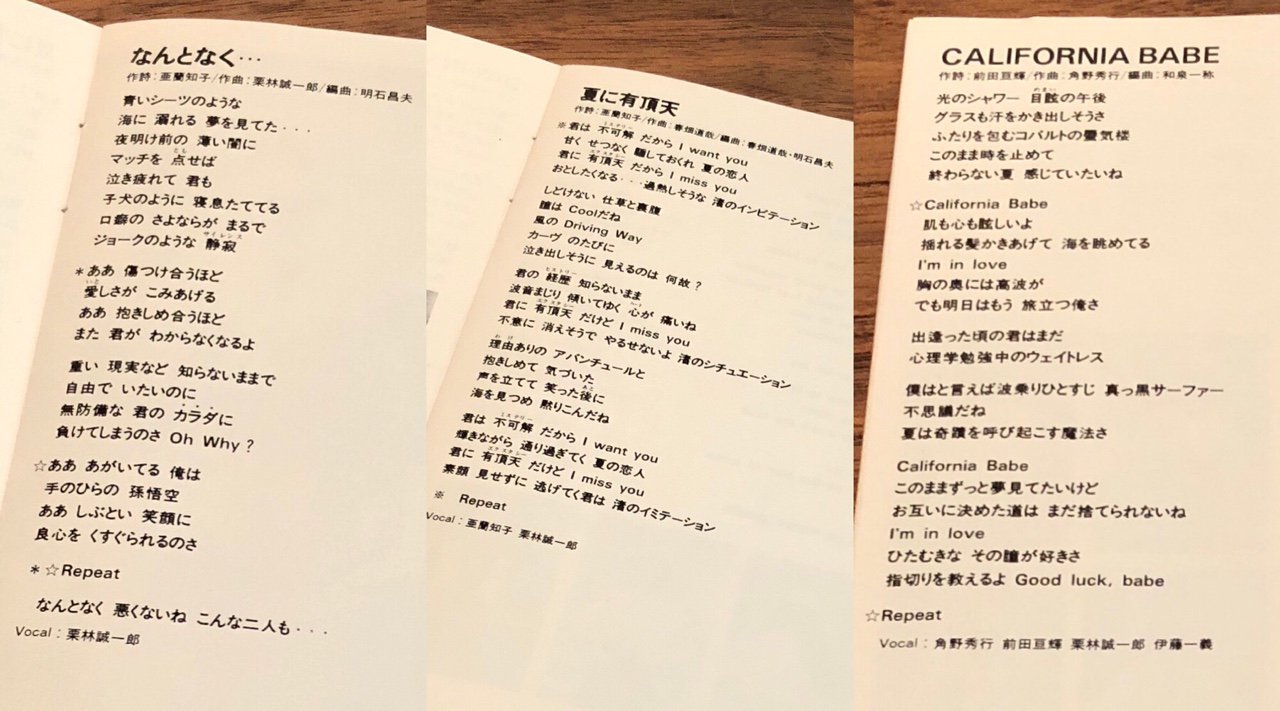 なんとなく・・・
作詩：亜蘭知子/作曲：栗林誠一郎/編曲：明石昌夫
青いシーツのような
海に 溺れる 夢を見てた・・・
夜明け前の 薄い闇に
マッチを 点せば
とも
泣き疲れて 君も
子犬のように 寝息たててる
口癖の さよならが まるで
ジョークのような 静寂
サイレンス
＊ああ 傷つけ合うほど
愛しさが こみあげる
いと
ああ 抱きしめ合うほど
また 君が わからなくなるよ
重い 現実など 知らないままで
自由で いたいのに
無防備な 君の カラダに
負けてしまうのさ Oh Why？
☆ああ あがいてる 俺は
手のひらの 孫悟空
ああ しぶとい 笑顔に
良心を くすぐられるのさ
＊☆Repeat
なんとなく 悪くないね こんな二人も・・・
Vocal：栗林誠一郎
夏に有頂天
作詩：亜蘭知子/作曲：春畑道哉/編曲：春畑道哉・明石昌夫
※君は 不可解 だから I want you
ミステリー
甘く せつなく 騙しておくれ 夏の恋人
君に 有頂天 だから I miss you
エクスタシー
おとしたくなる・・・過熱しそうな 渚のインビテーション
しどけない 仕草と裏腹
瞳は Coolだね
風の Driving Way
カーヴ のたびに
泣き出しそうに 見えるのは 何故？
君の 経歴 知らないまま
ヒストリー
波音まじり 傾いてゆく 心が 痛いね
ハート
君に 有頂天 だけど I miss you
エクスタシー
不意に 消えそうで やるせないよ 渚のシチュエーション
理由ありの アバンチュールと
わけ
抱きしめて 気づいた
声を立てて 笑った後に
あと
海を見つめ 黙りこんだね
君は 不可解 だから I want you
ミステリー
輝きながら 通り過ぎてく 夏の恋人
君に 有頂天 だけど I miss you
エクスタシー
素顔 見せずに 逃げてく君は 渚のイミテーション
※ Repeat
Vocal：亜蘭知子 栗林誠一郎
CALIFORNIA BABE
作詩：前田亘輝/作曲：角野秀行/編曲：和泉一弥
光のシャワー 目眩の午後
めまい
グラスも汗をかき出しそうさ
ふたりを包むコバルトの蜃気楼
このまま時を止めて
終わらない夏 感じていたいね
☆California Babe
肌も心も眩しいよ
揺れる髪かきあげて 海を眺めてる
I'm in love
胸の奥には高波が
でも明日はもう 旅立つ俺さ
出逢った頃の君はまだ
心理学勉強中のウェイトレス
僕はと言えば波乗りひとすじ 真っ黒サーファー
不思議だね
夏は奇蹟を呼び起こす魔法さ
California Babe
このままずっと夢見てたいけど
お互いに決めた道は まだ捨てられないね
I'm in love
ひたむきな その瞳が好きさ
指切りを教えるよ Good luck, babe
☆Repeat
Vocal：角野秀行 前田亘輝 栗林誠一郎 伊藤一義